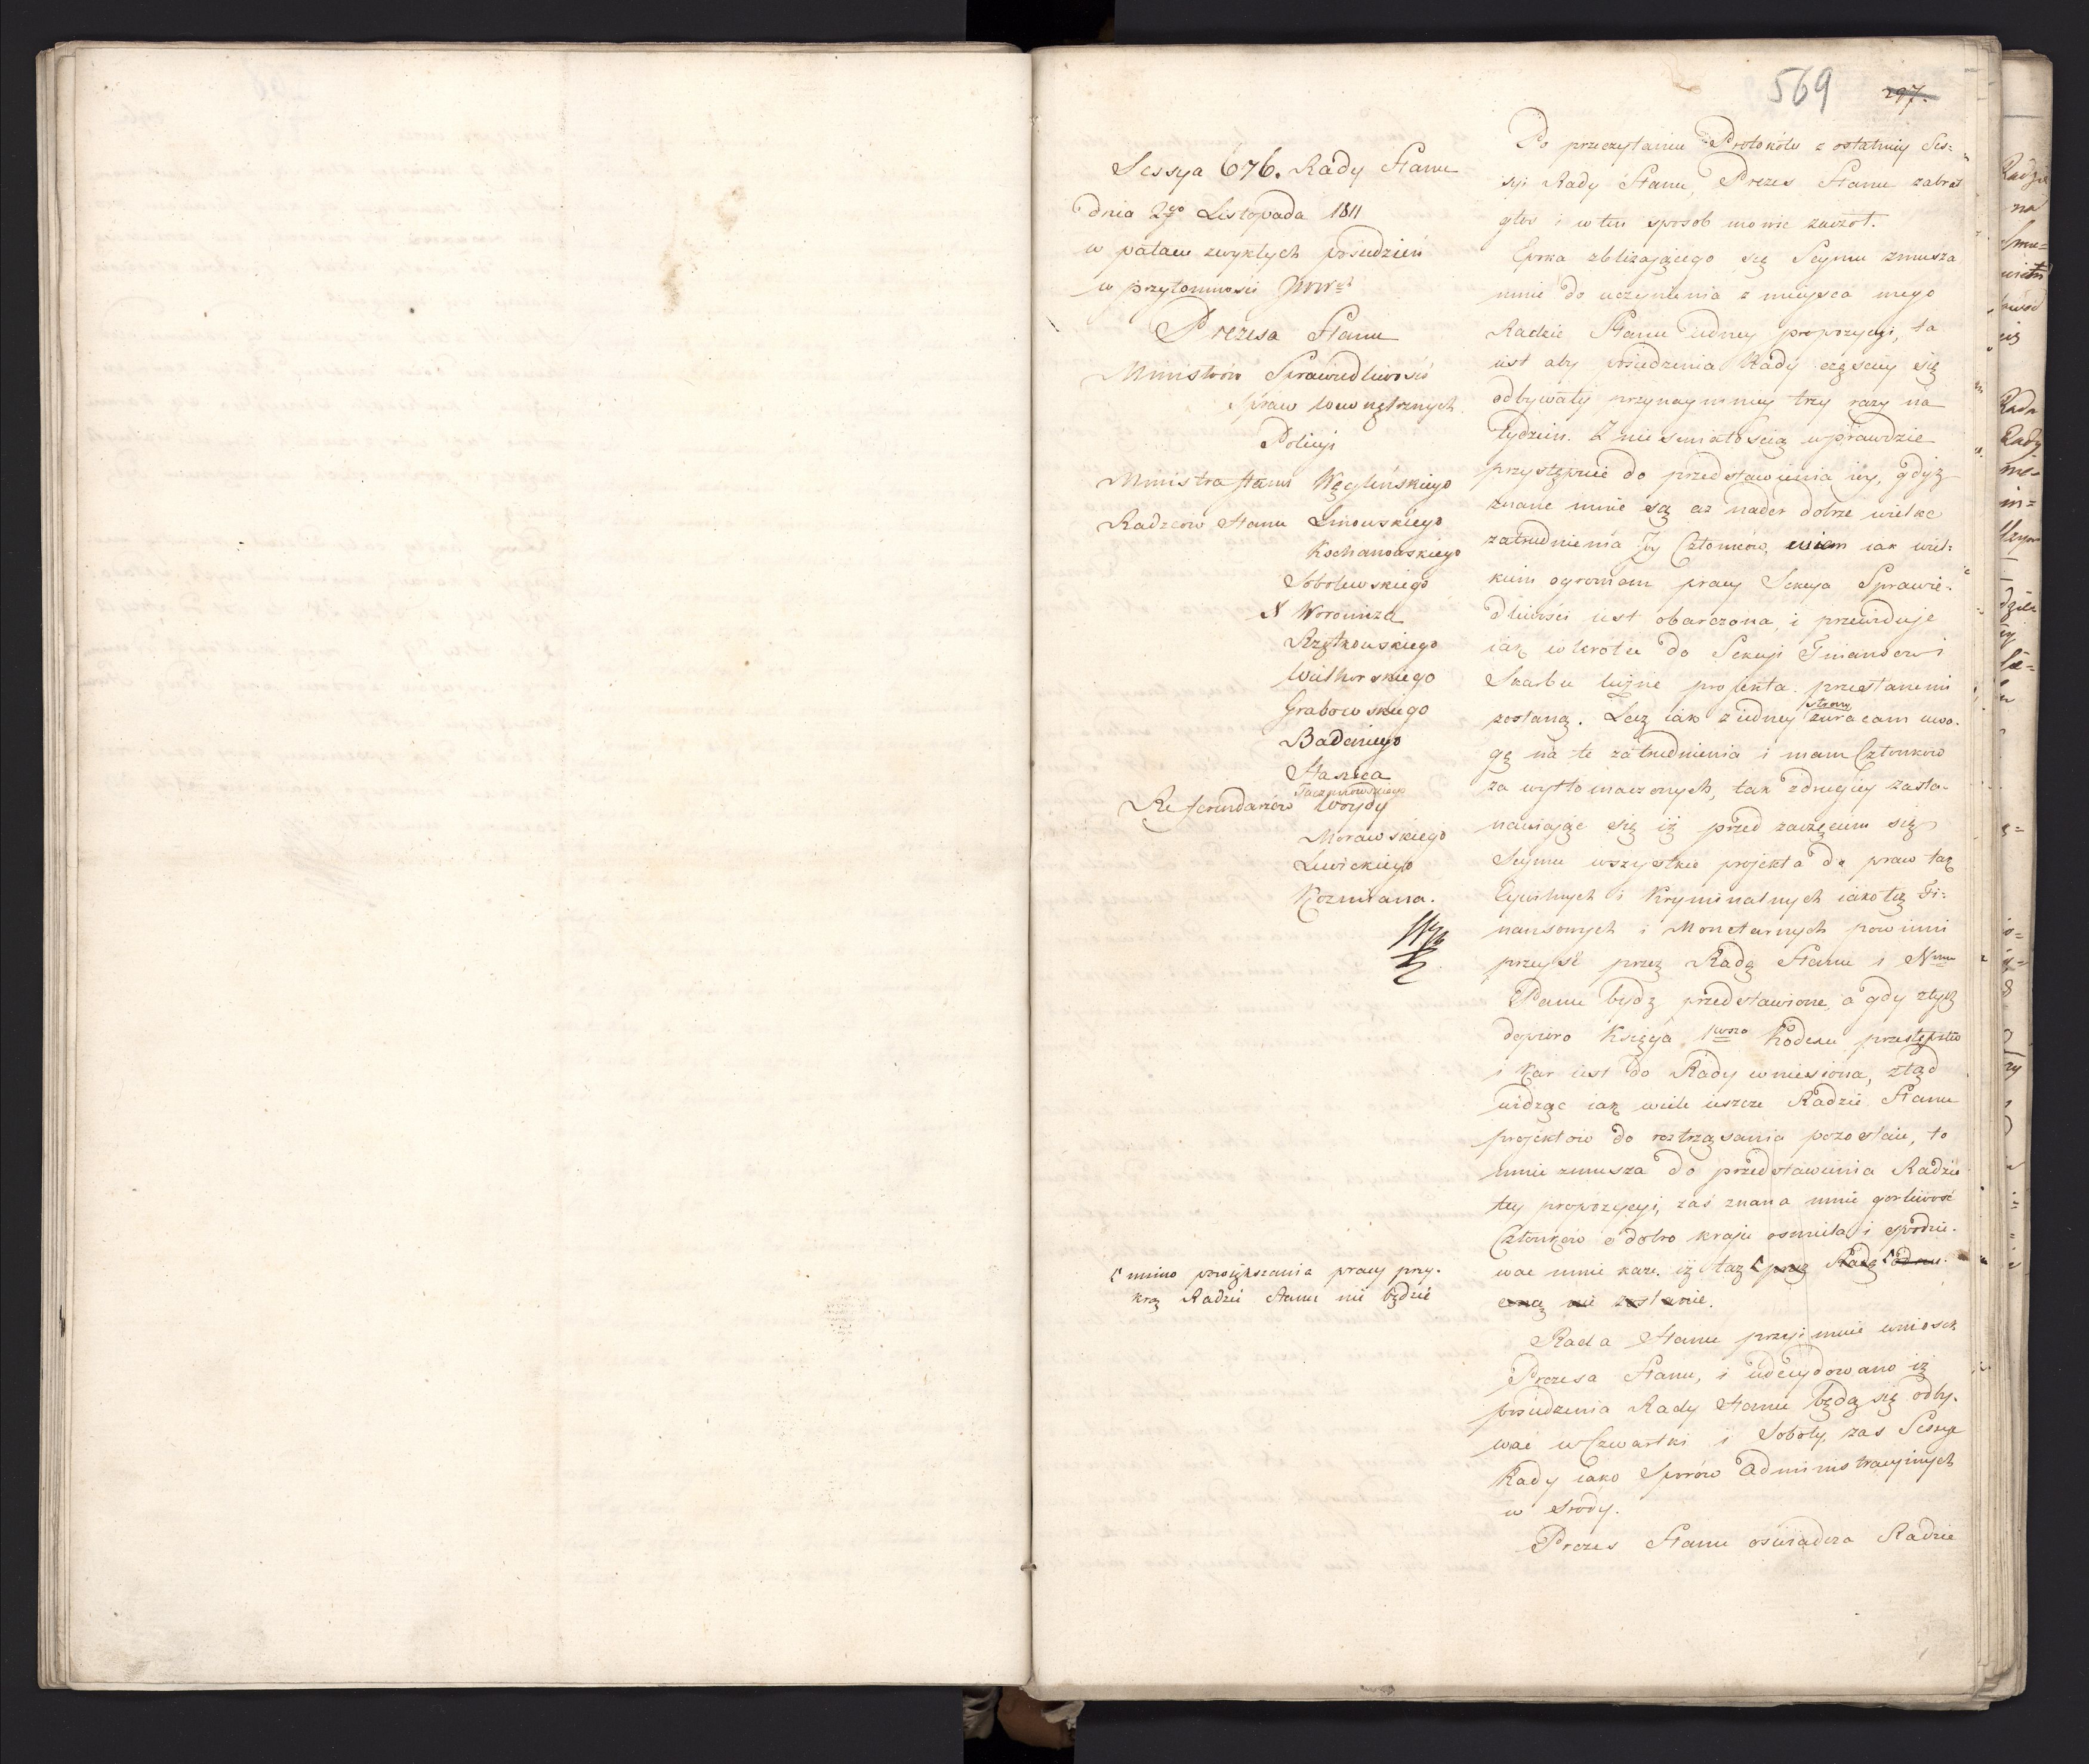 569 297.
Sessya 676. Rady Stanu
dnia 2go Listopada 1811
w pałacu zwykłych posiedzień
w przytomności JWW
Prezesa Stanu
Ministrów Sprawiedliwości
Spraw wewnętrznych
Policyi
Ministra Stanu Węgleńskiego
Radzców Stanu Linowskiego
Kochanowskiego
Sobolewskiego
X Woronicza
Rzętkowskiego
Wielhorskiego
Grabowskiego
Badeniego
Stasica
Taczanowskiego
Referendarzów Woydy
Morawskiego
Lewickiego
Kozmiana.
⌈ mimo powiększania pracy przy-
krą Radzie Stanu nie będzie
Po przeczytaniu Protokółu z ostatniey Ses:
syi Rady Stanu, Prezes Stanu zabrał
głos i w ten sposob mowic zaczoł.
Epoka zbliżaiącego się Seymu zmusza
mnie do uczynienia z mieysca mego
Radzie Stanu iedney propozycyi, ta
iest aby posiedzenia Rady częściey się
odbywały przynaymniey trzy razy na
Tydzień. Z nieśmiałością wprawdzie
przystępuie do przedstawienia iey, gdyż
znane mnie są aż nader dobrze wielkc
zatrudnienia Jey Członków, wiem iak wiel:
kim ogromem pracy Sekcya Sprawie-
dliwości iest obarczona, i przewiduje
iak wkrótce do Sekcyi Finansow i
Skarbu liczne projekta przesłanemi
zostaną. Lecz iak z iedney strony zwracam uwa-
gę na te zatrudnienia i mam Członków
za wytłomaczonych, tak zdrugiey zasta-
nawiając się iż przed zaczęciem się
Seymu wszystkie projekta do praw tak
Cywilnych i Kryminalnych iakoteż Fi:
nansowych i Monetarnych powinni
przeyść przez Radę Stanu i Nmu
Panu bydź przedstawione, a gdy ztych
dopiero Księga 1wsza Kodexu przestępstw
i kar iest do Rady wniesiona, ztąd
widząc iak wiele ieszcze Radzie Stanu
projektów do roztrząsania pozostaie, to
mnie zmusza do przedstawienia Radzie
tey propozycyi, zaś znana mnie gorliwość
Członków o dobro kraju ośmiela i spodzie-
wać mnie każe, iż taż ⌈ przez Radę odrzu-
coną nie zostanie.
Rada Stanu przyimuie wniosek
Prezesa Stanu, i zdecydowano iż
posiedzenia Rady Stanu będą się odby-
wać w Czwartki i Soboty, zas Sessye
Rady iako Sporów Administracyinych
w Srody.
Prezes Stanu oswiadcza Radzie